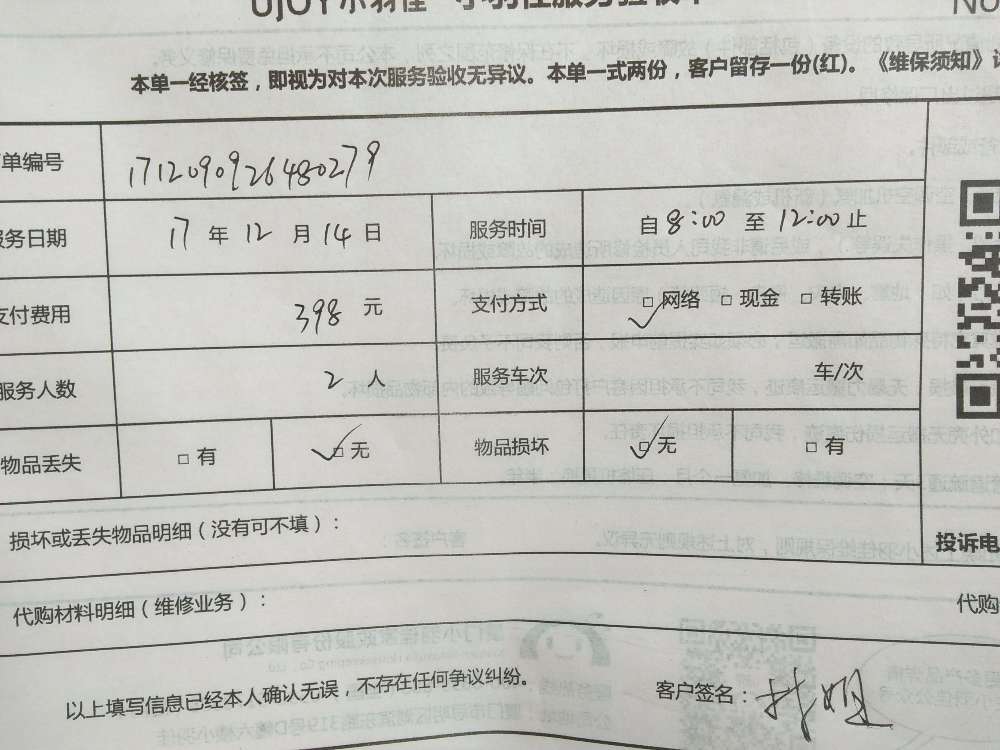 UjOY小羽佳
本单一经核签，即视为对本次服务验收无异议。本单一式两份，客户留存一份(红)。《维保须知》
单编号 1712090926480279
服务日期 17 年 12 月 14 日 服务时间 自 8:00 至 12:00 止
支付费用 398 元 支付方式 □ 网络 □ 现金 □ 转账
服务人数 2 人 服务车次 车/次
物品丢失 □ 有 □ 无 物品损坏 □ 无 □ 有
损坏或丢失物品明细（没有可不填）：
投诉电
代购材料明细（维修业务）：
代购
以上填写信息已经本人确认无误，不存在任何争议纠纷。
客户签名：